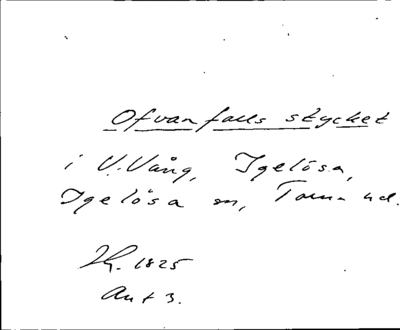 Ofvanfalls stycket
i V. Vång, Igelösa,
Igelösa sn, Torna hd.
1825
Akt 3.